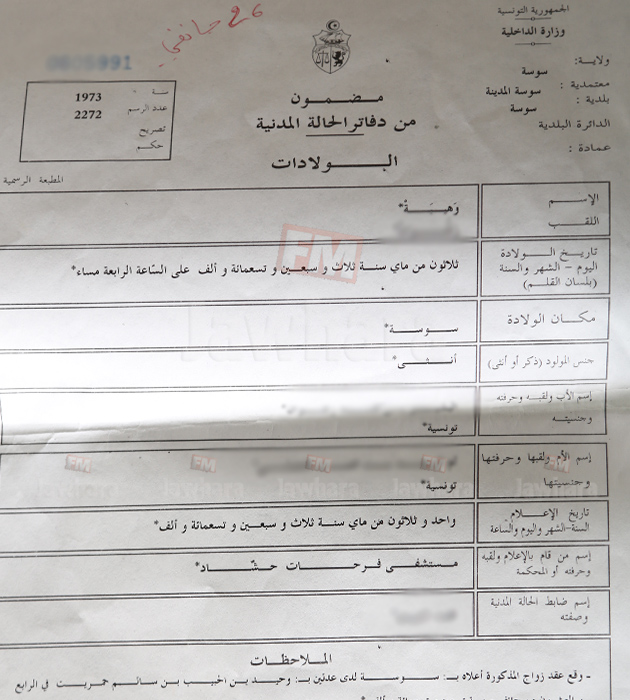 26 جانفي
الجمهورية التونسية
وزارة الداخلية
ولاية: سوسة
معتمدية: سوسة المدينة
بلدية: سوسة
الدائرة البلدية
عمادة:
991
سنة 1973
عدد الرسم 2272
تصريح
حكم
مضمون
من دفاتر الحالة المدنية
الولادات
المطبعة الرسمية
الإسم
وَهَبَـةُ*
اللقب
تاريخ الولادة
اليوم - الشهر والسنة
(بلسان القلم)
ثلاثون من ماي سنة ثلاث و سبعين و تسعمائة و ألف على السّاعة الرابعة مساء*
مكان الولادة
سوسة*
جنس المولود (ذكر أو أنثى)
أنثى*
إسم الأب ولقبه وحرفته
وجنسيته
تونسية*
إسم الأم ولقبها وحرفتها
وجنسيتها
تونسية*
تاريخ الإعلام
السنة-الشهر واليوم والسّاعة
واحد و ثلاثون من ماي سنة ثلاث و سبعين و تسعمائة و ألف*
إسم من قام بالإعلام ولقبه
وحرفته أو المحكمة
مستشفى فرحات حشّاد*
إسم ضابط الحالة المدنية
وصفته
الملاحظات
ـ وقع عقد زواج المذكورة أعلاه بـ: سوسة لدى عدلين بـ: وحيد بن الحبيب بن سالم في الرابع
FM
Jawhara